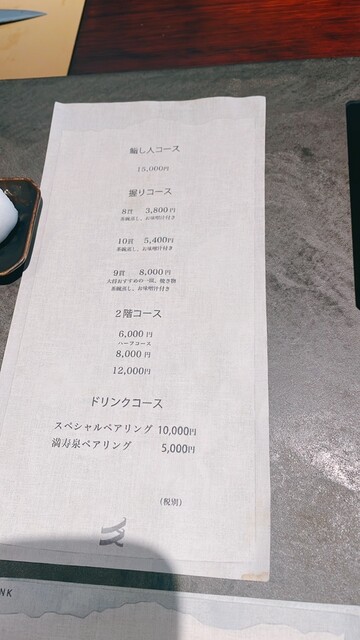 鮨し人コース
15,000円
握りコース
8貫 3,800円
茶碗蒸し、お味噌汁付き
10貫 5,400円
茶碗蒸し、お味噌汁付き
9貫 8,000円
大将おすすめの一品、焼き物
茶碗蒸し、お味噌汁付き
2階コース
6,000円
ハーフコース
8,000円
12,000円
ドリンクコース
スペシャルペアリング 10,000円
満寿泉ペアリング 5,000円
(税別)
NK